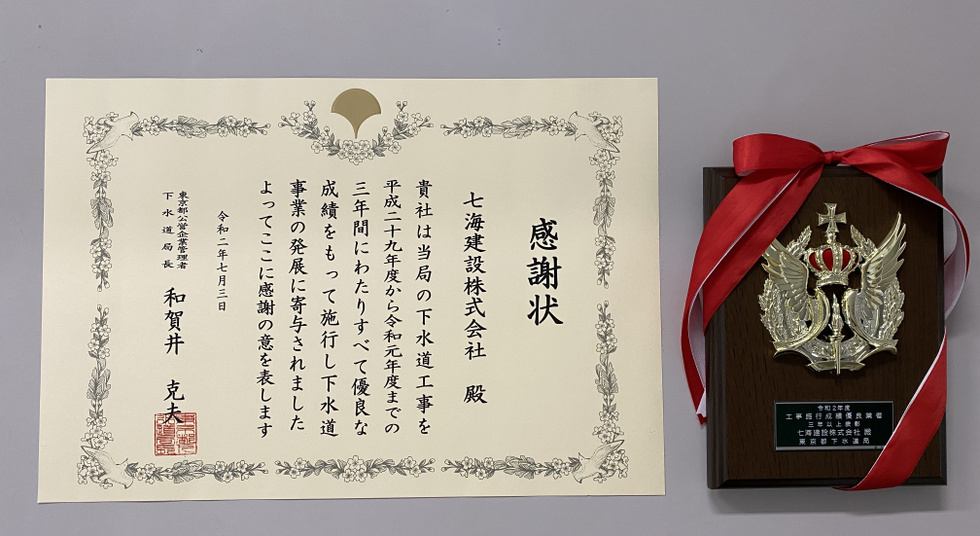 感謝状
七海建設株式会社　殿
貴社は当局の下水道工事を
平成二十九年度から令和元年度までの
三年間にわたりすべて優良な
成績をもって施行し下水道
事業の発展に寄与されました
よってここに感謝の意を表します
令和二年七月三日
東京都公営企業管理者
下水道局長
和賀井　克夫
令和2年度
工事施行成績優良業者
三年以上表彰
七海建設株式会社 殿
東京都下水道局